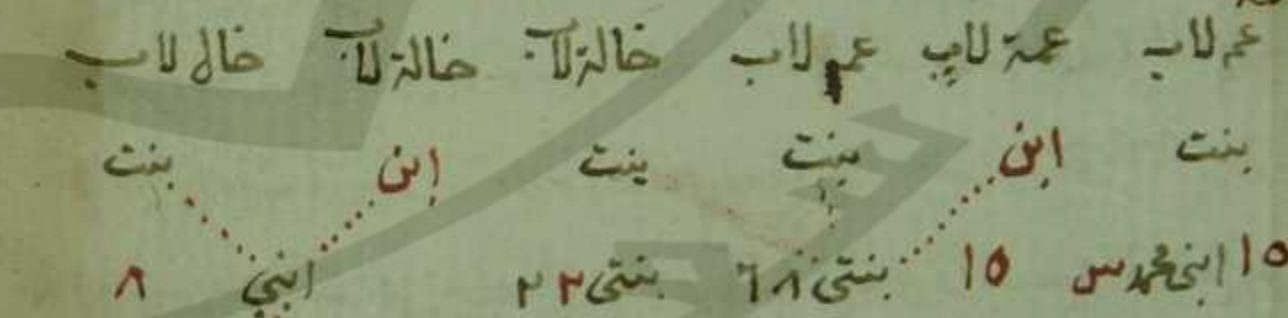 عم لاب عمة لاب عم لاب خالة لاب خالة لاب خال لاب
بنت ابن بنت بنت ابن بنت
١٥ ابنى ١٥ بنتى ٦٨ بنتى ٢٣ ابنى ٨